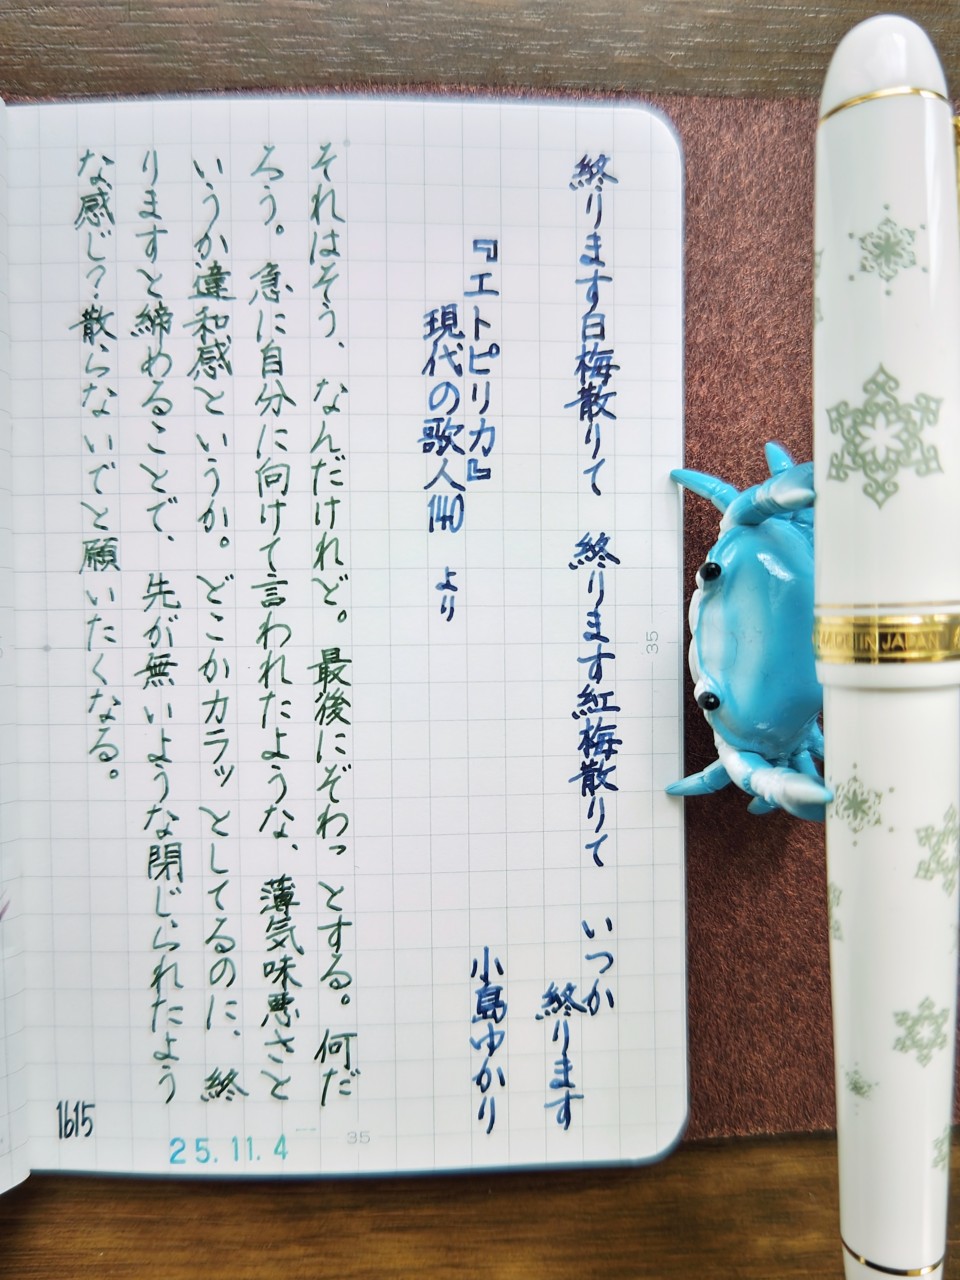 終ります白梅散りて　終ります紅梅散りて　いつか
終ります
『エトピリカ』　小島ゆかり
現代の歌人140　より
それはそう、なんだけれど。最後にぞわっとする。何だ
ろう。急に自分に向けて言われたような、薄気味悪さと
いうか違和感というか。どこかカラッとしてるのに、終
りますと締めることで、先が無いような閉じられたよう
な感じ？散らないでと願いたくなる。
1615
25.11.4
35
35
MADE IN JAPAN